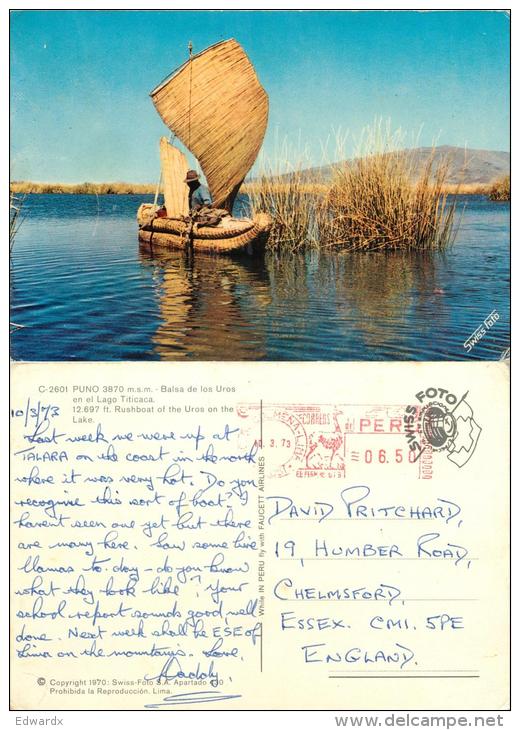 Swiss foto
C-2601 PUNO 3870 m.s.m. - Balsa de los Uros
en el Lago Titicaca.
12.697 ft. Rushboat of the Uros on the
Lake.
10/3/73
Last week we were up at
TALARA on the coast in the north
where it was very hot. Do you
recognise this sort of boat? I
havent seen one yet but there
are many here. Saw some live
llamas to-day - do you know
what they look like? Your
school report sounds good, well
done. Next week shall be ESE of
Lima on the mountains. Love,
Daddy.
© Copyright 1970: Swiss-Foto S.A. Apartado
Prohibida la Reproducción. Lima.
While IN PERU fly with FAUCETT AIRLINES
CORREOS
del PERU
10.3.73
06.50
SWISS FOTO
DAVID PRITCHARD,
19, HUMBER ROAD,
CHELMSFORD,
ESSEX. CM1. 5PE
ENGLAND.
Edwardx